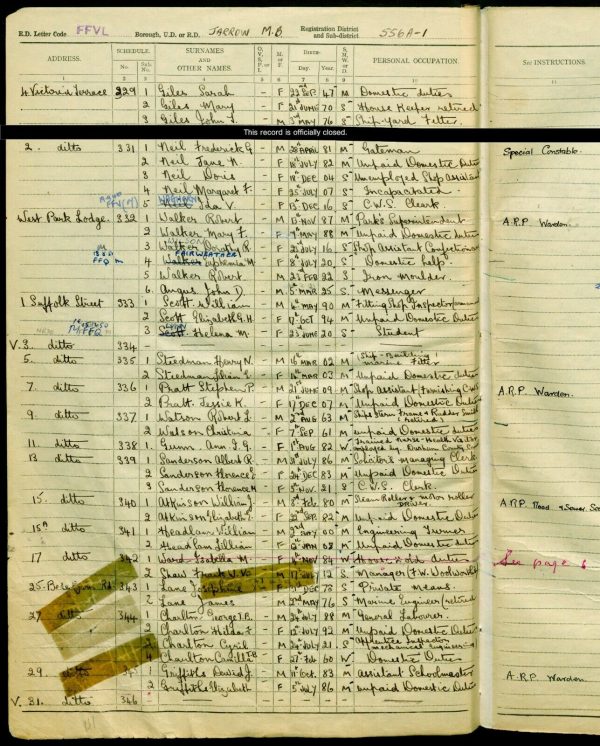 R.D. Letter Code FFVL Borough, U.D. or R.D. JARROW M.B Registration District and Sub-district 556A-1
ADDRESS. SCHEDULE. SURNAMES AND OTHER NAMES. M. or F. BIRTH— S. M. W. or D. PERSONAL OCCUPATION. See INSTRUCTIONS.
No. Sub. No. Day. Year.
1 2 3 4 5 6 7 8 9 10 11
4 Victoria Terrace 329 1 Giles Sarah - F 22nd SEP 47 M Domestic duties
2 Giles Mary - F 21st JUNE 70 S House Keeper retired
3 Giles John T. - M 3rd MAY 76 S Ship-yard Fitter.
This record is officially closed.
2. ditto 331 1 Neil Frederick G. - M 28 APRIL 81 M Gateman Special Constable.
2 Neil Jane N. - F 18th JULY 82 M Unpaid Domestic Duties
3 Neil Doris - F 18th DEC 04 S Unemployed Shop Assistant
4 Neil Margaret F. - F 25 JULY 07 S Incapacitated.
5 Ida V. - F 13th DEC 16 S C.W.S. Clerk.
West Park Lodge. 332 1 Walker Robert - M 13th NOV 87 M Parks Superintendent A.R.P Warden.
2 Walker Mary F. - F 1st MAY 88 M Unpaid Domestic duties
3 Walker Dorothy R. - F JULY 16 S Shop Assistant Confectioner
FAIRWEATHER
4 Walker Euphemia M. - F 8th JULY 20 S Domestic help
5 Walker Robert - M 27 FEB 22 S Iron moulder.
6 Angus John D. - M 5 MAR 25 S Messenger
1 Suffolk Street 333 1 Scott William - M 6th MAY 90 M Fitting Shop Inspector
2 Scott Elizabeth G.H - F 17th OCT 94 M Unpaid Domestic duties
3 Scott Helena M. - F 23rd JUNE 20 S Student
V. 3. ditto 334 -
5. ditto 335 1 Steedman Henry N. - M 16th MAR 02 M Ship-Building Marine Fitter
2 Steedman - F 16th MAR 03 M Unpaid Domestic duties
7. ditto 336 1 Pratt Stephen P. - M 21st JUNE 09 M Shop Assistant Furnishing C.W.S A.R.P. Warden.
2 Pratt Jessie K. - F 17 DEC 07 M Unpaid Domestic Duties
9. ditto 337 1 Watson Robert L. - M 2nd AUG 63 M Ships Stern Frame & Rudder Smith (retired)
2 Watson Christina - F 7th SEP 61 M unpaid Domestic duties
11. ditto 338 1 Gunn Ann I.G. - F 1st AUG 82 W Trained nurse-Health Visitor employed by Durham County Council
13 ditto 339 1 Sanderson Albert R. - M 31st JULY 86 M Solicitor's managing Clerk
2 Sanderson Florence E. - F 24th DEC 83 M Unpaid Domestic Duties
3 Sanderson Florence M. - F 5th NOV. 21 S C.W.S. Clerk
15. ditto 340 1 Atkinson William J. - M 8th FEB 80 M Steam Roller & motor roller Driver. A.R.P. Road & Sewer
2 Atkinson Elizabeth E. - F 22nd SEP. 82 M Unpaid Domestic Duties
15A ditto 341 1 Headlam William - M 2nd MAY 00 M Engineering Turner
2 Headlam Lillian - F 12th JAN 08 M Unpaid Domestic Duties
17 ditto 342 1 Ward Isabella M. - F NOV 84 W House-hold duties See page 6
2 Shaw Frank - M 17th JULY 12 S Manager (F.W. Woolworth)
25. Bede Burn Rd. 343 1 Lane Josephine - F DEC 78 S Private means
2 Lane James - M 2nd MAY 76 S Marine Engineer (retired)
27. ditto 344 1 Charlton George T.B. - M 24th JULY 88 M General Labourer.
2 Charlton Hilda F. - F 13th JULY 92 M Unpaid Domestic Duties
3 Charlton Cyril - M 24th JULY 21 S Apprentice Inspector mechanical engineer
4 Charlton Camilla B - F 27 FEB 60 W Domestic Duties
29. ditto 345 1 Griffiths David J. - M 11th OCT. 83 M assistant Schoolmaster A.R.P. Warden.
2 Griffiths Elizabeth - F 5th JULY 86 M unpaid Domestic Duties
V. 31. ditto 346 -